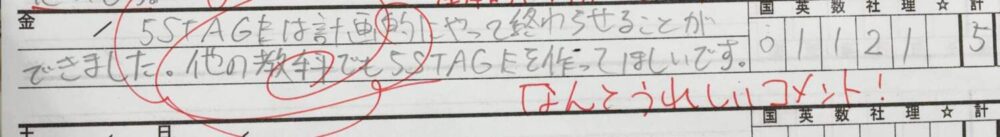 金 / 5STAGEは計画的にやって終わらせることが
できました。他の教科でも5STAGEを作ってほしいです。
国 英 数 社 理 ☆ 計
0 1 1 2 1 5
なんとうれしいコメント!
土 日 /
国 英 数 社 理 ☆ 計